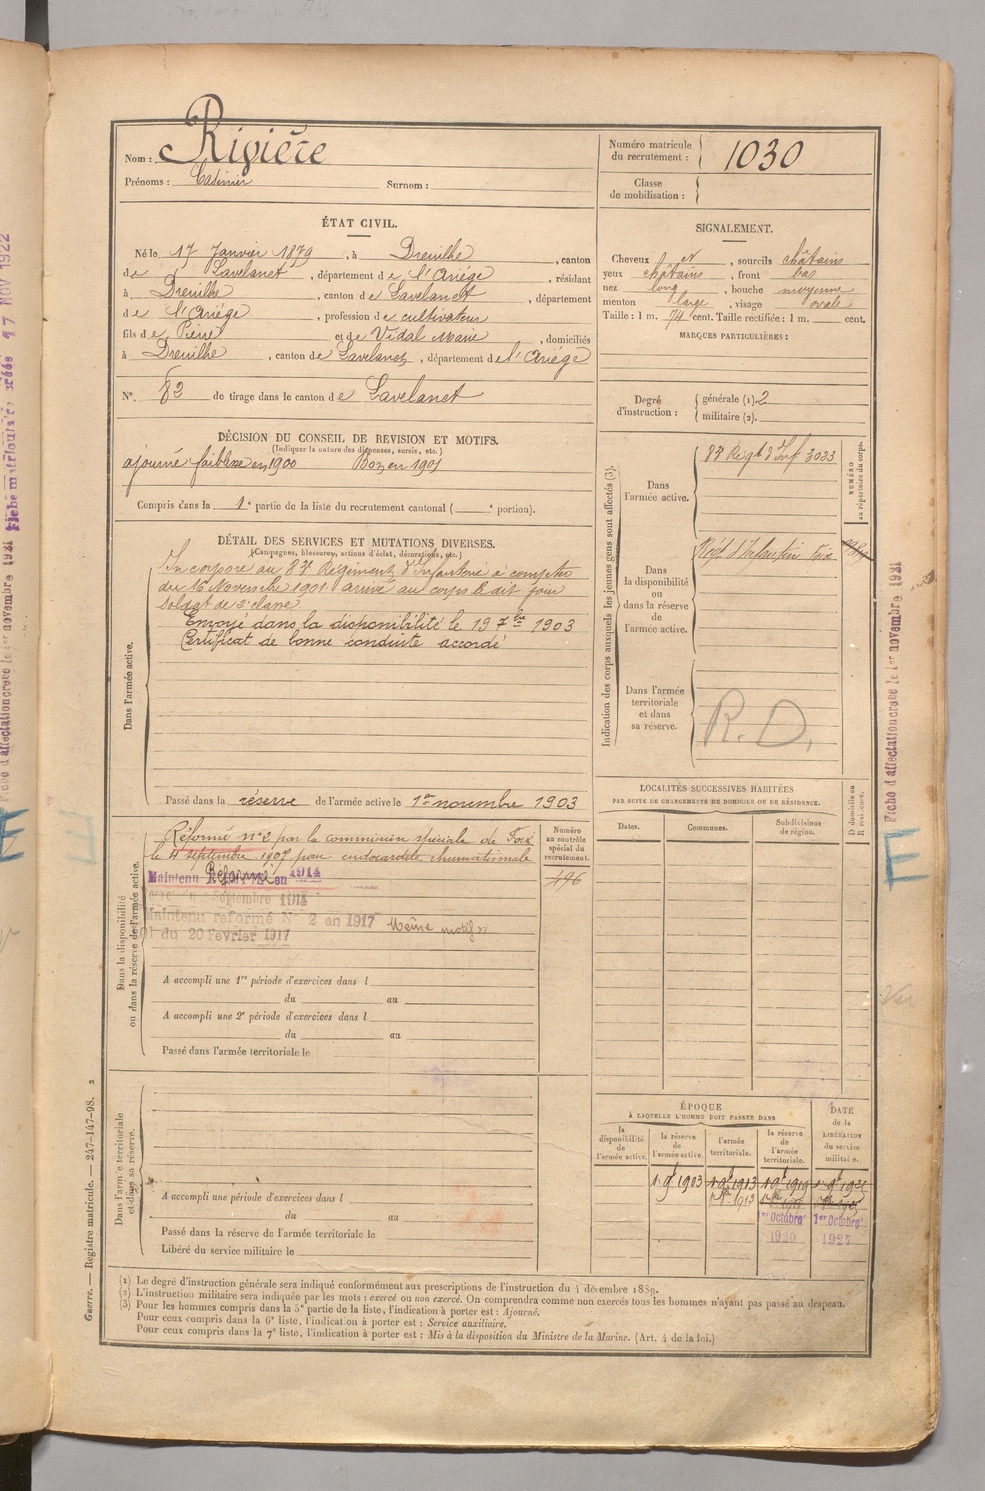 Nom : Rivière
Prénoms : Casimir Surnom :
Numéro matricule
du recrutement : 1030
Classe
de mobilisation :
ÉTAT CIVIL.
Né le 17 Janvier 1879, à Dreuilhe, canton
de Lavelanet, département de l'Ariège, résidant
à Dreuilhe, canton de Lavelanet, département
de l'Ariège, profession de cultivateur
fils de Pierre et de Vidal Marie, domiciliés
à Dreuilhe, canton de Lavelanet, département de l'Ariège
N°. 82 de tirage dans le canton de Lavelanet
SIGNALEMENT.
Cheveux et, sourcils châtains
yeux châtains, front bas
nez long, bouche moyenne
menton large, visage ovale
Taille : 1 m. 74 cent. Taille rectifiée : 1 m. cent.
MARQUES PARTICULIÈRES :
Degré
d'instruction : générale (1). 2
militaire (2).
DÉCISION DU CONSEIL DE REVISION ET MOTIFS.
(Indiquer la nature des dispenses, sursis, etc.)
ajourné faiblesse en 1900 Bon en 1901
Compris dans la 1e partie de la liste du recrutement cantonal ( e portion).
DÉTAIL DES SERVICES ET MUTATIONS DIVERSES.
(Campagnes, blessures, actions d'éclat, décorations, etc.)
Dans l'armée active.
Incorporé au 87 Régiment d'Infanterie à compter
du 16 Novembre 1901 arrivé au corps le dit jour
Soldat de 2e classe
Envoyé dans la disponibilité le 19 7bre 1903
Certificat de bonne conduite accordé
Passé dans la réserve de l'armée active le 1er novembre 1903
Indication des corps auxquels les jeunes gens sont affectés (3).
NUMÉRO
au répertoire du corps.
Dans
l'armée active.
87 Regt d'Inf 3033
Dans
la disponibilité
ou
dans la réserve
de
l'armée active.
Régt d'Infanterie Foix
Dans l'armée
territoriale
et dans
sa réserve.
R.D.
LOCALITÉS SUCCESSIVES HABITÉES
PAR SUITE DE CHANGEMENTS DE DOMICILE OU DE RÉSIDENCE.
Dates.
Communes.
Subdivisions
de région.
D domicile ou
R résidence.
Dans la disponibilité
ou dans la réserve de l'armée active.
Numéro
au contrôle
spécial du
recrutement.
496
Réformé n° 2 par la commission spéciale de Foix
le 4 septembre 1907 pour endocardite rhumatismale
Maintenu Réformé en 1914
Septembre 1914
Maintenu réformé N° 2 en 1917 Même motif
du 20 Février 1917
A accompli une 1re période d'exercices dans l
du au
A accompli une 2e période d'exercices dans l
du au
Passé dans l'armée territoriale le
Dans l'armée territoriale
et dans sa réserve.
A accompli une période d'exercices dans l
du au
Passé dans la réserve de l'armée territoriale le
Libéré du service militaire le
ÉPOQUE
À LAQUELLE L'HOMME DOIT PASSER DANS
DATE
de la
LIBÉRATION
du service
militaire.
la
disponibilité
de
l'armée active.
la réserve
de
l'armée active.
l'armée
territoriale.
la réserve
de
l'armée
territoriale.
1903 1913 1919
1913
1er Octobre 1er Octobre
1920 1927
(1) Le degré d'instruction générale sera indiqué conformément aux prescriptions de l'instruction du 4 décembre 1889.
(2) L'instruction militaire sera indiquée par les mots : exercé ou non exercé. On comprendra comme non exercés tous les hommes n'ayant pas passé au drapeau.
(3) Pour les hommes compris dans la 5e partie de la liste, l'indication à porter est : Ajourné.
Pour ceux compris dans la 6e liste, l'indication à porter est : Service auxiliaire.
Pour ceux compris dans la 7e liste, l'indication à porter est : Mis à la disposition du Ministre de la Marine. (Art. 4 de la loi.)
Guerre. — Registre matricule. — 247-147-98. 2
Fiche d'affectation créée le 1er novembre 1931
Fiche matriculaire créée 17 NOV 1922
Fiche d'affectation créée le 1er novembre 1931
E